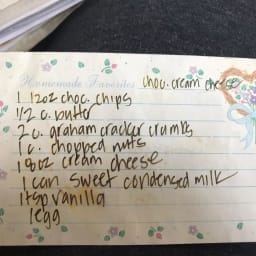 Homemade Favorites choc. cream cheese
1 12oz choc. chips
1/2 c. butter
2 c. graham cracker crumbs
1 c. chopped nuts
1 8oz cream cheese
1 can sweet condensed milk
1 tsp vanilla
1 egg